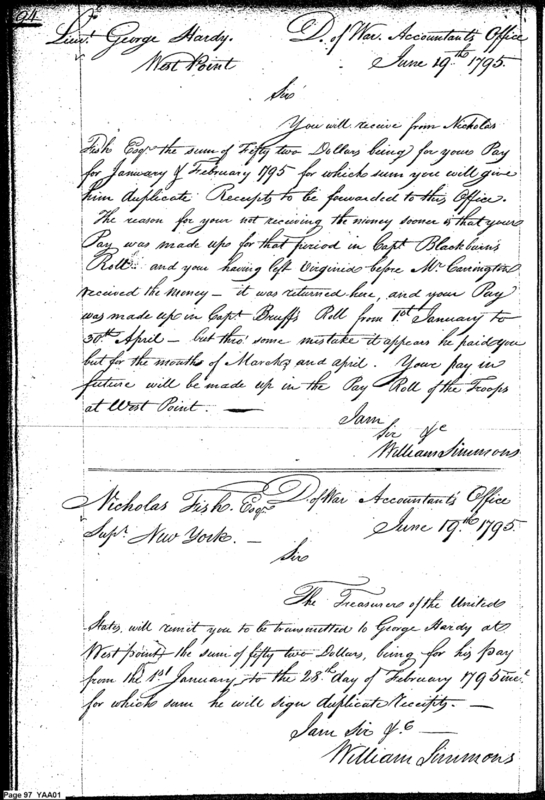 94
Lieut. George Hardy. D. of War. Accountants Office
West Point June 19.th 1795.
Sir
You will receive from Nicholas
Fish Esqr. the sum of Fifty two Dollars being for your Pay
for January & February 1795 for which sum you will give
him duplicate Receipts to be forwarded to this Office.
The reason for your not receiving the money sooner is that your
Pay was made up for that period in Capt Blackburn's
Roll and your having left Virginia before Mr. Carrington
received the money — it was returned here, and your Pay
was made up in Capt Bruff's Roll from 1.st January to
30.th April — but thro' some mistake it appears he paid you
but for the months of March and april. Your pay in
future will be made up in the Pay Roll of the Troops
at West Point. —
I am
Sir &c
William Simmons
Nicholas Fish Esqr. D. of War Accountant's Office
Supr. New York. — June 19.th 1795.
Sir
The Treasurer of the United
States, will remit you to be transmitted to George Hardy at
West point the sum of fifty two Dollars, being for his pay
from the 1st January to the 28th day of February 1795 inc.l
for which sum he will sign duplicate Receipts. —
I am Sir &c —
William Simmons
Page 97 YAA01